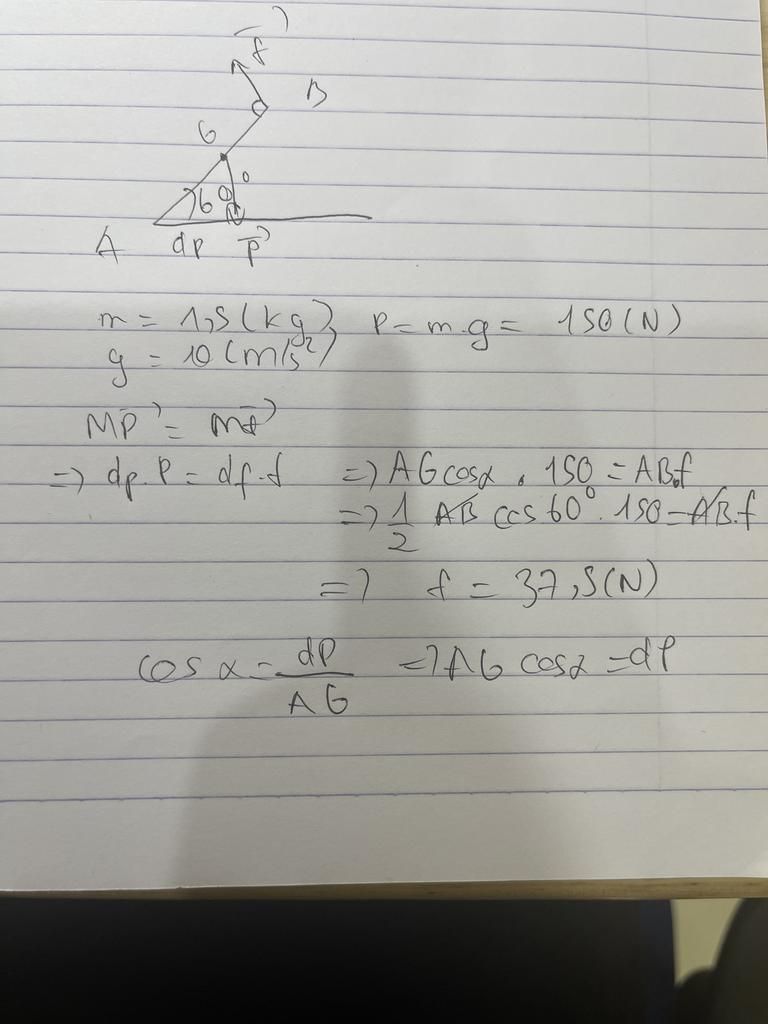 f
B
G
60°
A dp P
m = 1,5 (kg), P = m.g = 150 (N)
g = 10 (m/s²)
MP = Mf
=> dp.P = df.f => AG cosα . 150 = AB.f
=> 1/2 AB cos 60°. 150 = AB.f
=> f = 37,5 (N)
cos α = dP/AG => AG cosα = dP